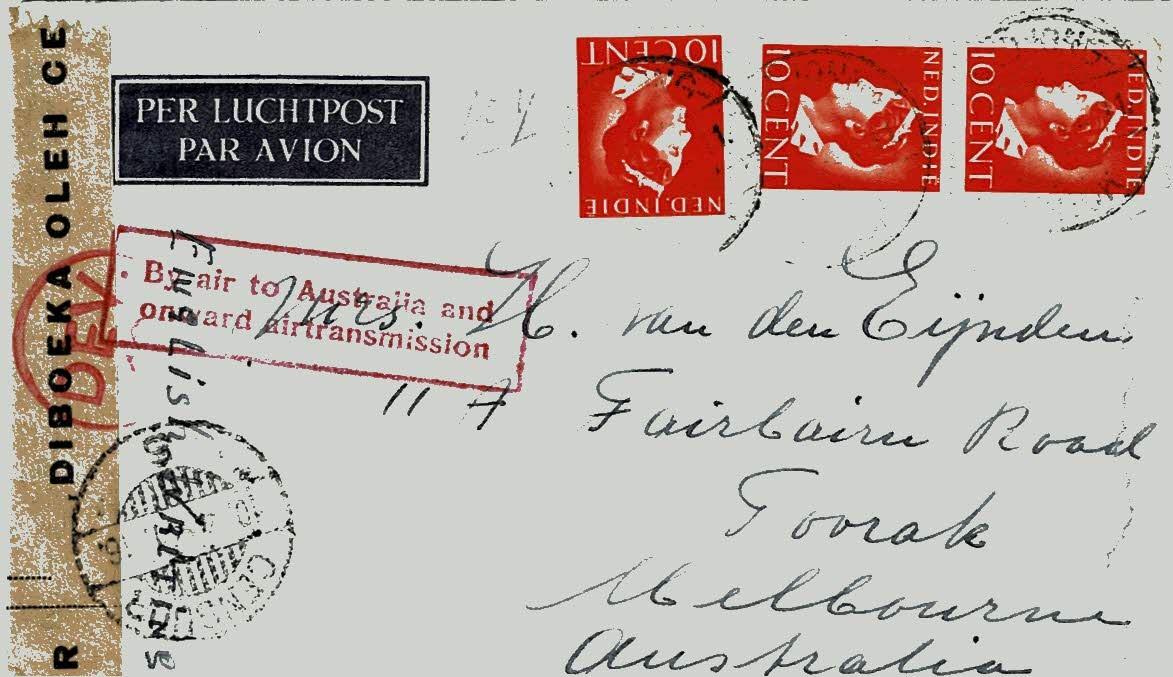 DIBOEKA OLEH CE
R
PER LUCHTPOST
PAR AVION
10 CENT
NED. INDIË
10 CENT
NED. INDIE
10 CENT
NED. INDIE
By air to Australia and
onward airtransmission
English
Mrs. H. van den Eijnden
117 Fairbairn Road
Toorak
Melbourne
Australia
CENSUUR